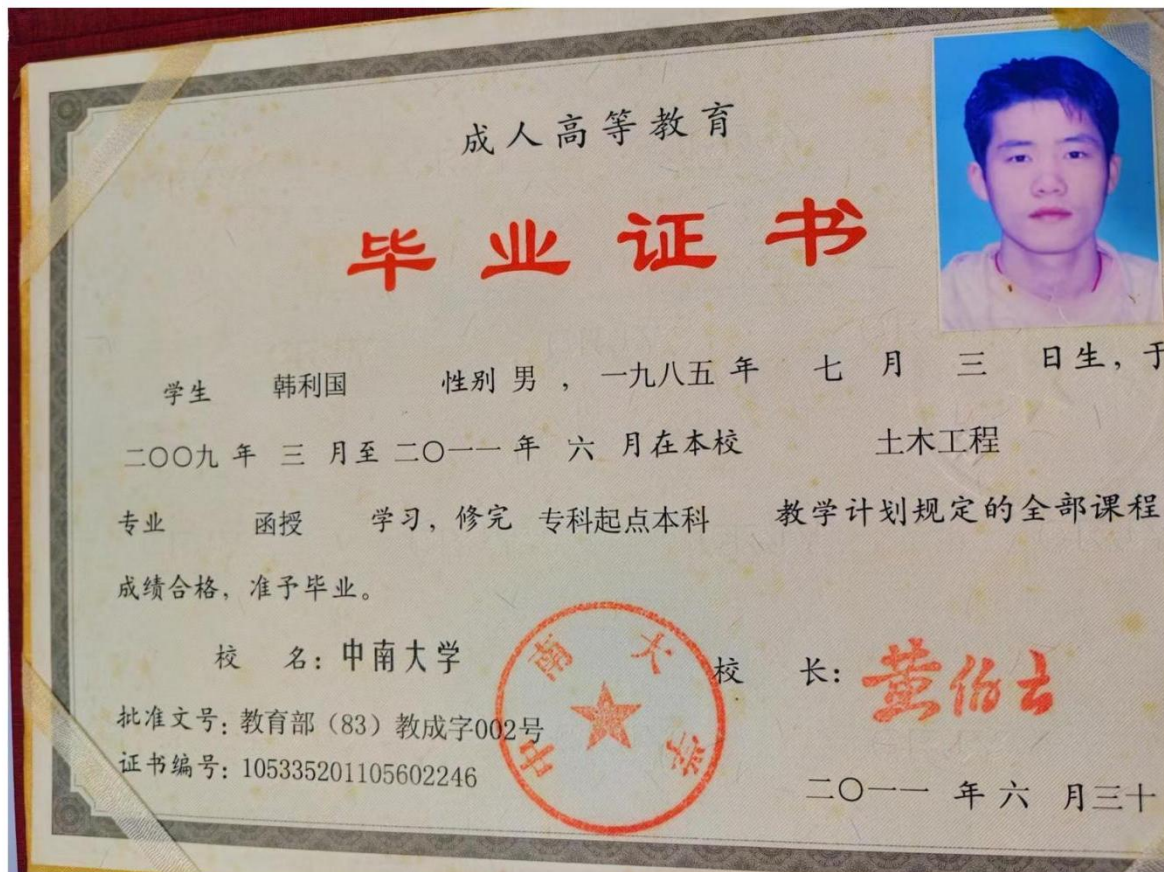 成人高等教育
毕业证书
学生 韩利国 性别 男 ，一九八五 年 七 月 三 日生，于
二〇〇九 年 三 月至 二〇一一 年 六 月在本校 土木工程
专业 函授 学习，修完 专科起点本科 教学计划规定的全部课程
成绩合格，准予毕业。
校 名：中南大学 校 长：黄伯云
批准文号：教育部（83）教成字002号
证书编号：105335201105602246
二〇一一 年 六 月三十
中南大学